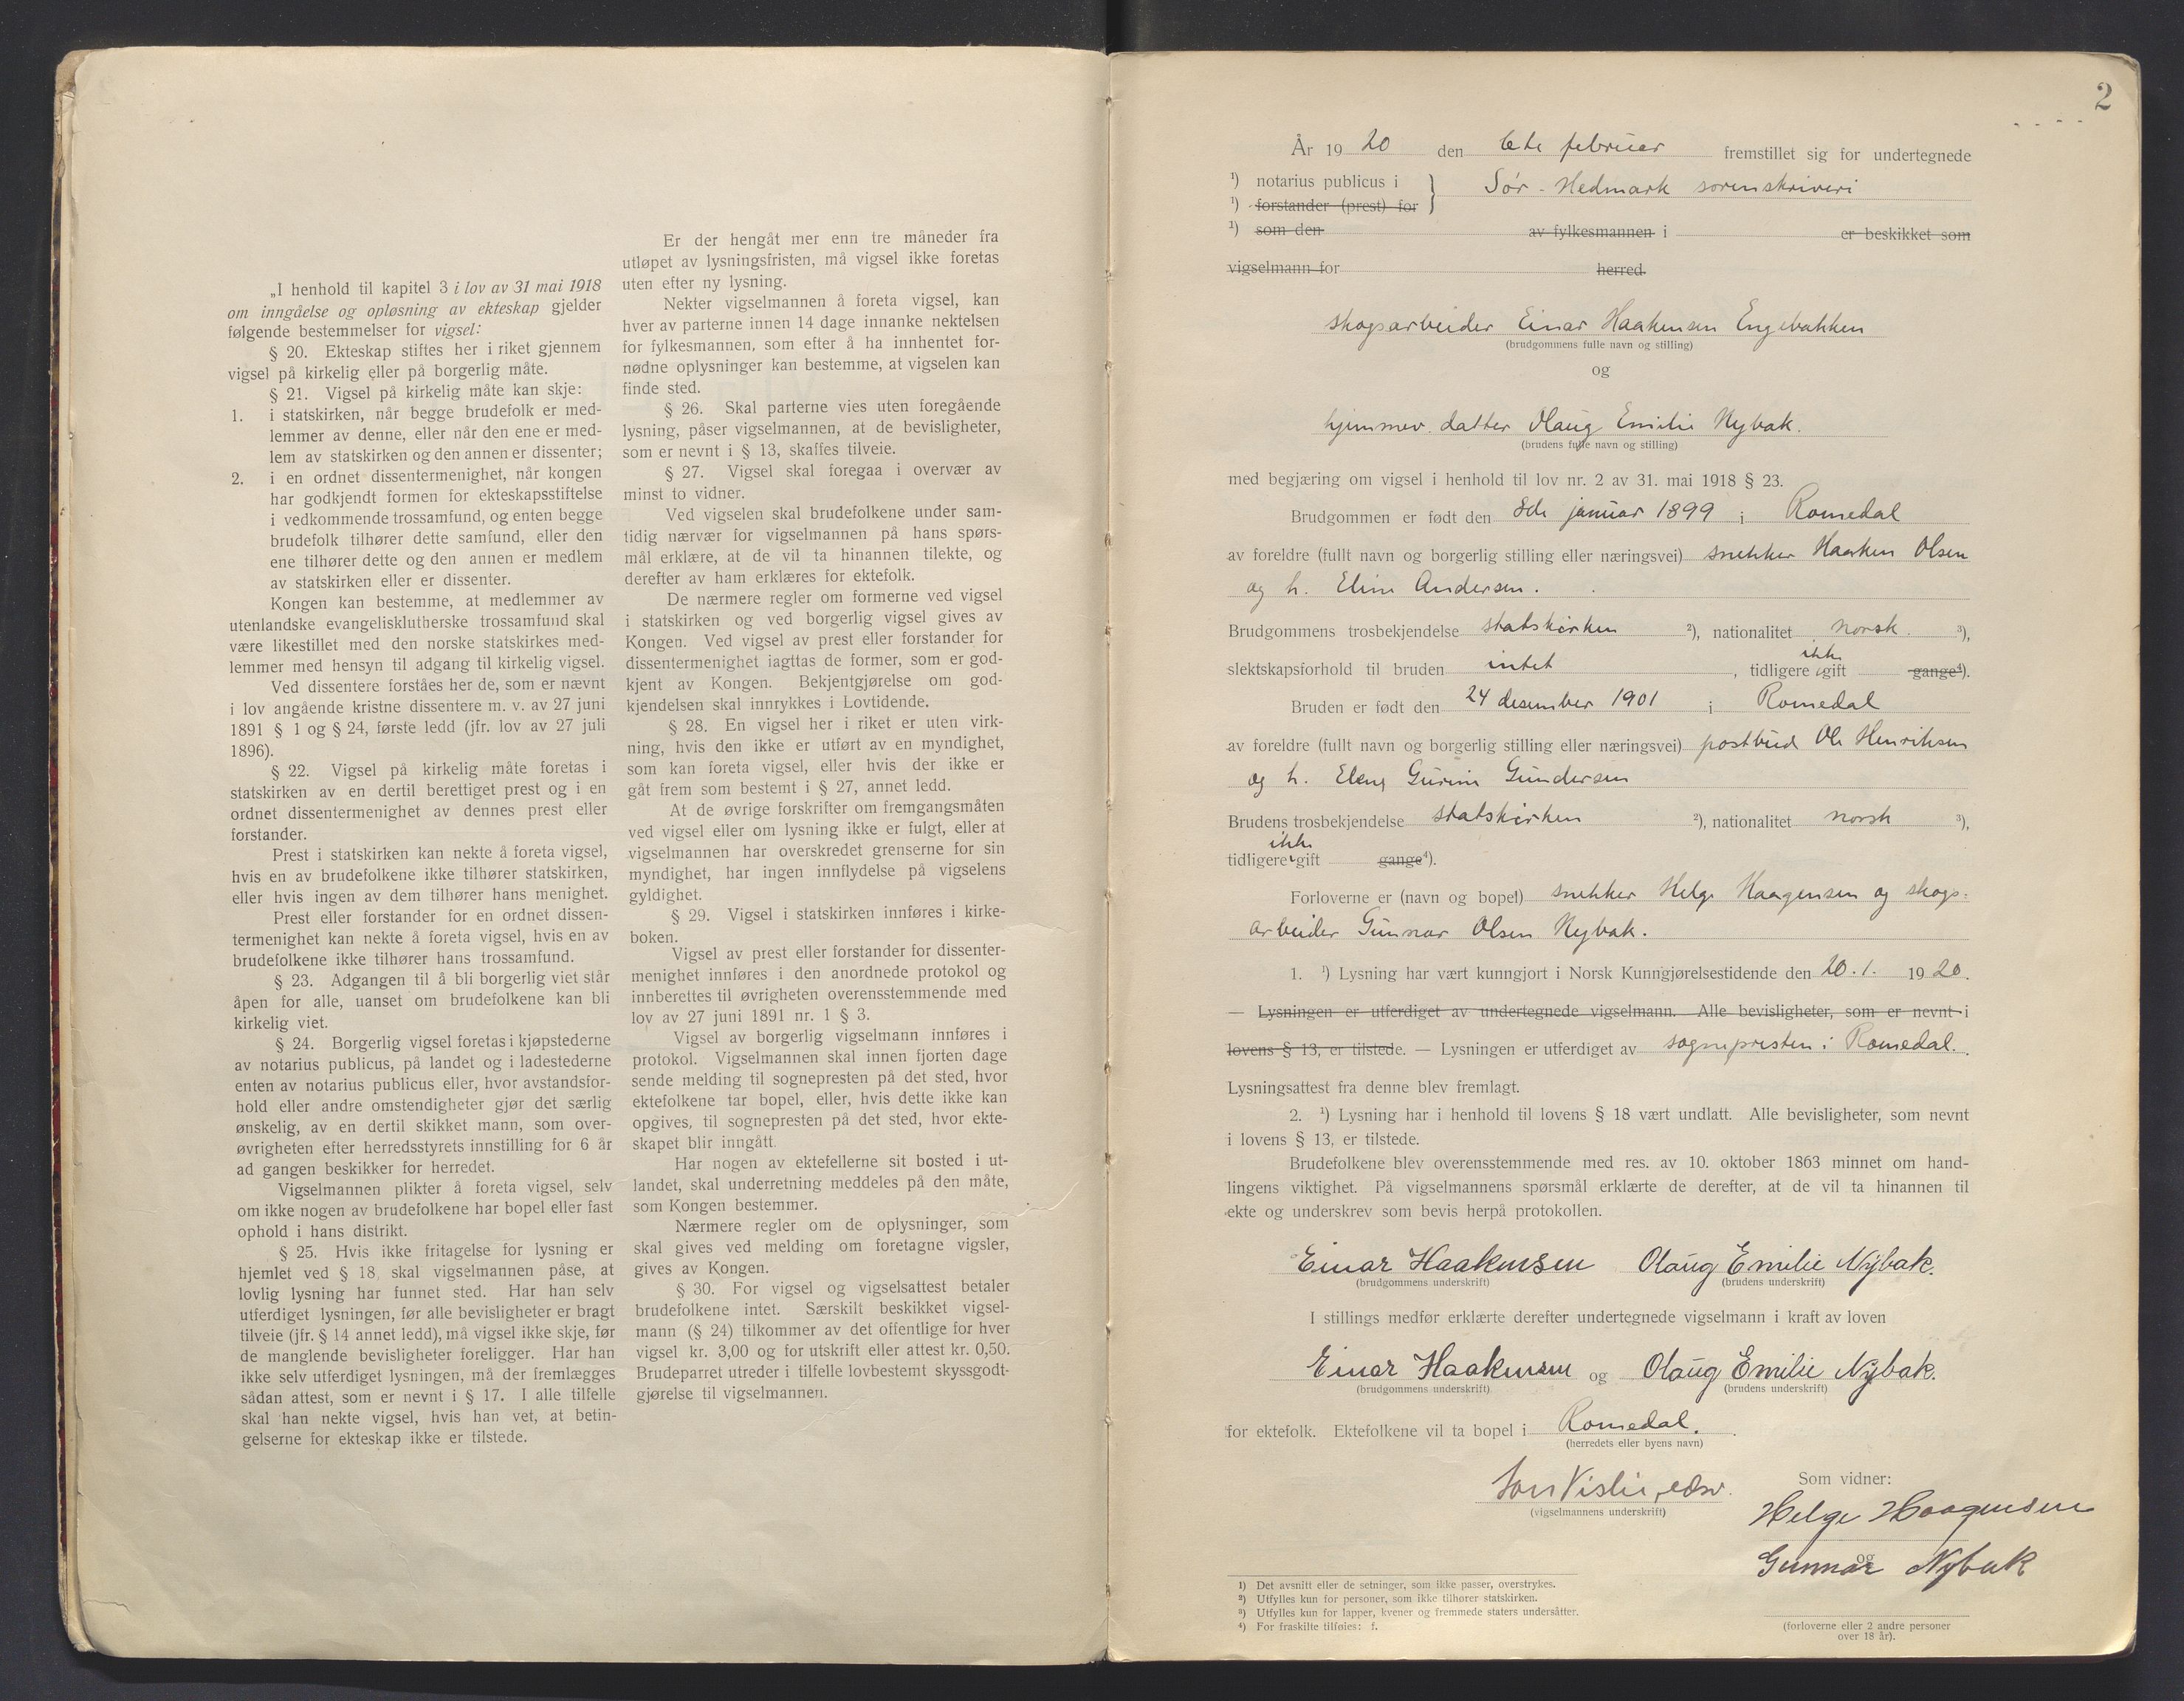 „I henhold til kapitel 3 i lov av 31 mai 1918
om inngåelse og opløsning av ekteskap gjelder
følgende bestemmelser for vigsel:
§ 20. Ekteskap stiftes her i riket gjennem
vigsel på kirkelig eller på borgerlig måte.
§ 21. Vigsel på kirkelig måte kan skje:
1. i statskirken, når begge brudefolk er med-
lemmer av denne, eller når den ene er med-
lem av statskirken og den annen er dissenter;
2. i en ordnet dissentermenighet, når kongen
har godkjendt formen for ekteskapsstiftelse
i vedkommende trossamfund, og enten begge
brudefolk tilhører dette samfund, eller den
ene tilhører dette og den annen er medlem
av statskirken eller er dissenter.
Kongen kan bestemme, at medlemmer av
utenlandske evangelisklutherske trossamfund skal
være likestillet med den norske statskirkes med-
lemmer med hensyn til adgang til kirkelig vigsel.
Ved dissentere forståes her de, som er nævnt
i lov angående kristne dissentere m. v. av 27 juni
1891 § 1 og § 24, første ledd (jfr. lov av 27 juli
1896).
§ 22. Vigsel på kirkelig måte foretas i
statskirken av en dertil berettiget prest og i en
ordnet dissentermenighet av dennes prest eller
forstander.
Prest i statskirken kan nekte å foreta vigsel,
hvis en av brudefolkene ikke tilhører statskirken,
eller hvis ingen av dem tilhører hans menighet.
Prest eller forstander for en ordnet dissen-
termenighet kan nekte å foreta vigsel, hvis en av
brudefolkene ikke tilhører hans trossamfund.
§ 23. Adgangen til å bli borgerlig viet står
åpen for alle, uanset om brudefolkene kan bli
kirkelig viet.
§ 24. Borgerlig vigsel foretas i kjøpstederne
av notarius publicus, på landet og i ladestederne
enten av notarius publicus eller, hvor avstandsfor-
hold eller andre omstendigheter gjør det særlig
ønskelig, av en dertil skikket mann, som over-
øvrigheten efter herredsstyrets innstilling for 6 år
ad gangen beskikker for herredet.
Vigselmannen plikter å foreta vigsel, selv
om ikke nogen av brudefolkene har bopel eller fast
ophold i hans distrikt.
§ 25. Hvis ikke fritagelse for lysning er
hjemlet ved § 18, skal vigselmannen påse, at
lovlig lysning har funnet sted. Har han selv
utferdiget lysningen, før alle bevisligheter er bragt
tilveie (jfr. § 14 annet ledd), må vigsel ikke skje, før
de manglende bevisligheter foreligger. Har han
ikke selv utferdiget lysningen, må der fremlægges
sådan attest, som er nevnt i § 17. I alle tilfelle
skal han nekte vigsel, hvis han vet, at betin-
gelserne for ekteskap ikke er tilstede.
Er der hengåt mer enn tre måneder fra
utløpet av lysningsfristen, må vigsel ikke foretas
uten efter ny lysning.
Nekter vigselmannen å foreta vigsel, kan
hver av parterne innen 14 dage innanke nektelsen
for fylkesmannen, som efter å ha innhentet for-
nødne oplysninger kan bestemme, at vigselen kan
finde sted.
§ 26. Skal parterne vies uten foregående
lysning, påser vigselmannen, at de bevisligheter,
som er nevnt i § 13, skaffes tilveie.
§ 27. Vigsel skal foregaa i overvær av
minst to vidner.
Ved vigselen skal brudefolkene under sam-
tidig nærvær for vigselmannen på hans spørs-
mål erklære, at de vil ta hinannen tilekte, og
derefter av ham erklæres for ektefolk.
De nærmere regler om formerne ved vigsel
i statskirken og ved borgerlig vigsel gives av
Kongen. Ved vigsel av prest eller forstander for
dissentermenighet iagttas de former, som er god-
kjent av Kongen. Bekjentgjørelse om god-
kjendelsen skal innrykkes i Lovtidende.
§ 28. En vigsel her i riket er uten virk-
ning, hvis den ikke er utført av en myndighet,
som kan foreta vigsel, eller hvis der ikke er
gåt frem som bestemt i § 27, annet ledd.
At de øvrige forskrifter om fremgangsmåten
ved vigsel eller om lysning ikke er fulgt, eller at
vigselmannen har overskredet grenserne for sin
myndighet, har ingen innflydelse på vigselens
gyldighet.
§ 29. Vigsel i statskirken innføres i kirke-
boken.
Vigsel av prest eller forstander for dissenter-
menighet innføres i den anordnede protokol og
innberettes til øvrigheten overensstemmende med
lov av 27 juni 1891 nr. 1 § 3.
Vigsel av borgerlig vigselmann innføres i
protokol. Vigselmannen skal innen fjorten dage
sende melding til sognepresten på det sted, hvor
ektefolkene tar bopel, eller, hvis dette ikke kan
opgives, til sognepresten på det sted, hvor ekte-
skapet blir inngått.
Har nogen av ektefellerne sit bosted i ut-
landet, skal underretning meddeles på den måte,
som Kongen bestemmer.
Nærmere regler om de oplysninger, som
skal gives ved melding om foretagne vigsler,
gives av Kongen.
§ 30. For vigsel og vigselsattest betaler
brudefolkene intet. Særskilt beskikket vigsel-
mann (§ 24) tilkommer av det offentlige for hver
vigsel kr. 3,00 og for utskrift eller attest kr. 0,50.
Brudeparret utreder i tilfelle lovbestemt skyssgodt-
gjørelse til vigselmannen.
2
År 1920 den 6te februar fremstillet sig for undertegnede
1) notarius publicus i } Sør-Hedmark sorenskriveri
1) forstander (prest) for
1) som den av fylkesmannen i er beskikket som
vigselmann for herred.
skogsarbeider Einar Haakensen Engebakken
(brudgommens fulle navn og stilling)
og
hjemmev. datter Olaug Emilie Nybak.
(brudens fulle navn og stilling)
med begjæring om vigsel i henhold til lov nr. 2 av 31. mai 1918 § 23.
Brudgommen er født den 8de januar 1899 i Romedal
av foreldre (fullt navn og borgerlig stilling eller næringsvei) snekker Haaken Olsen
og h. Eline Andersen.
Brudgommens trosbekjendelse statskirken 2), nationalitet norsk. 3),
slektskapsforhold til bruden intet, tidligere ikke gift gange4).
Bruden er født den 24 desember 1901 i Romedal
av foreldre (fullt navn og borgerlig stilling eller næringsvei) postbud Ole Henriksen
og h. Elene Gurine Gundersen
Brudens trosbekjendelse statskirken 2), nationalitet norsk 3),
tidligere ikke gift gange4).
Forloverne er (navn og bopel) snekker Helge Haagensen og skogs-
arbeider Gunnar Olsen Nybak.
1. 1) Lysning har vært kunngjort i Norsk Kunngjørelsestidende den 20.1. 1920.
— Lysningen er utferdiget av undertegnede vigselmann. Alle bevisligheter, som er nevnt i
lovens § 13, er tilstede. — Lysningen er utferdiget av sognepresten i Romedal.
Lysningsattest fra denne blev fremlagt.
2. 1) Lysning har i henhold til lovens § 18 vært undlatt. Alle bevisligheter, som nevnt
i lovens § 13, er tilstede.
Brudefolkene blev overensstemmende med res. av 10. oktober 1863 minnet om hand-
lingens viktighet. På vigselmannens spørsmål erklærte de derefter, at de vil ta hinannen til
ekte og underskrev som bevis herpå protokollen.
Einar Haakensen Olaug Emilie Nybak.
(brudgommens underskrift) (brudens underskrift)
I stillings medfør erklærte derefter undertegnede vigselmann i kraft av loven
Einar Haakensen og Olaug Emilie Nybak.
(brudgommens underskrift) (brudens underskrift)
for ektefolk. Ektefolkene vil ta bopel i Romedal.
(herredets eller byens navn)
Vislie, edsv.
(vigselmannens underskrift)
Som vidner:
Helge Haagensen
og
Gunnar Nybak
(forloverne eller 2 andre personer
over 18 år).
1) Det avsnitt eller de setninger, som ikke passer, overstrykes.
2) Utfylles kun for personer, som ikke tilhører statskirken.
3) Utfylles kun for lapper, kvener og fremmede staters undersåtter.
4) For fraskilte tilføies: f.